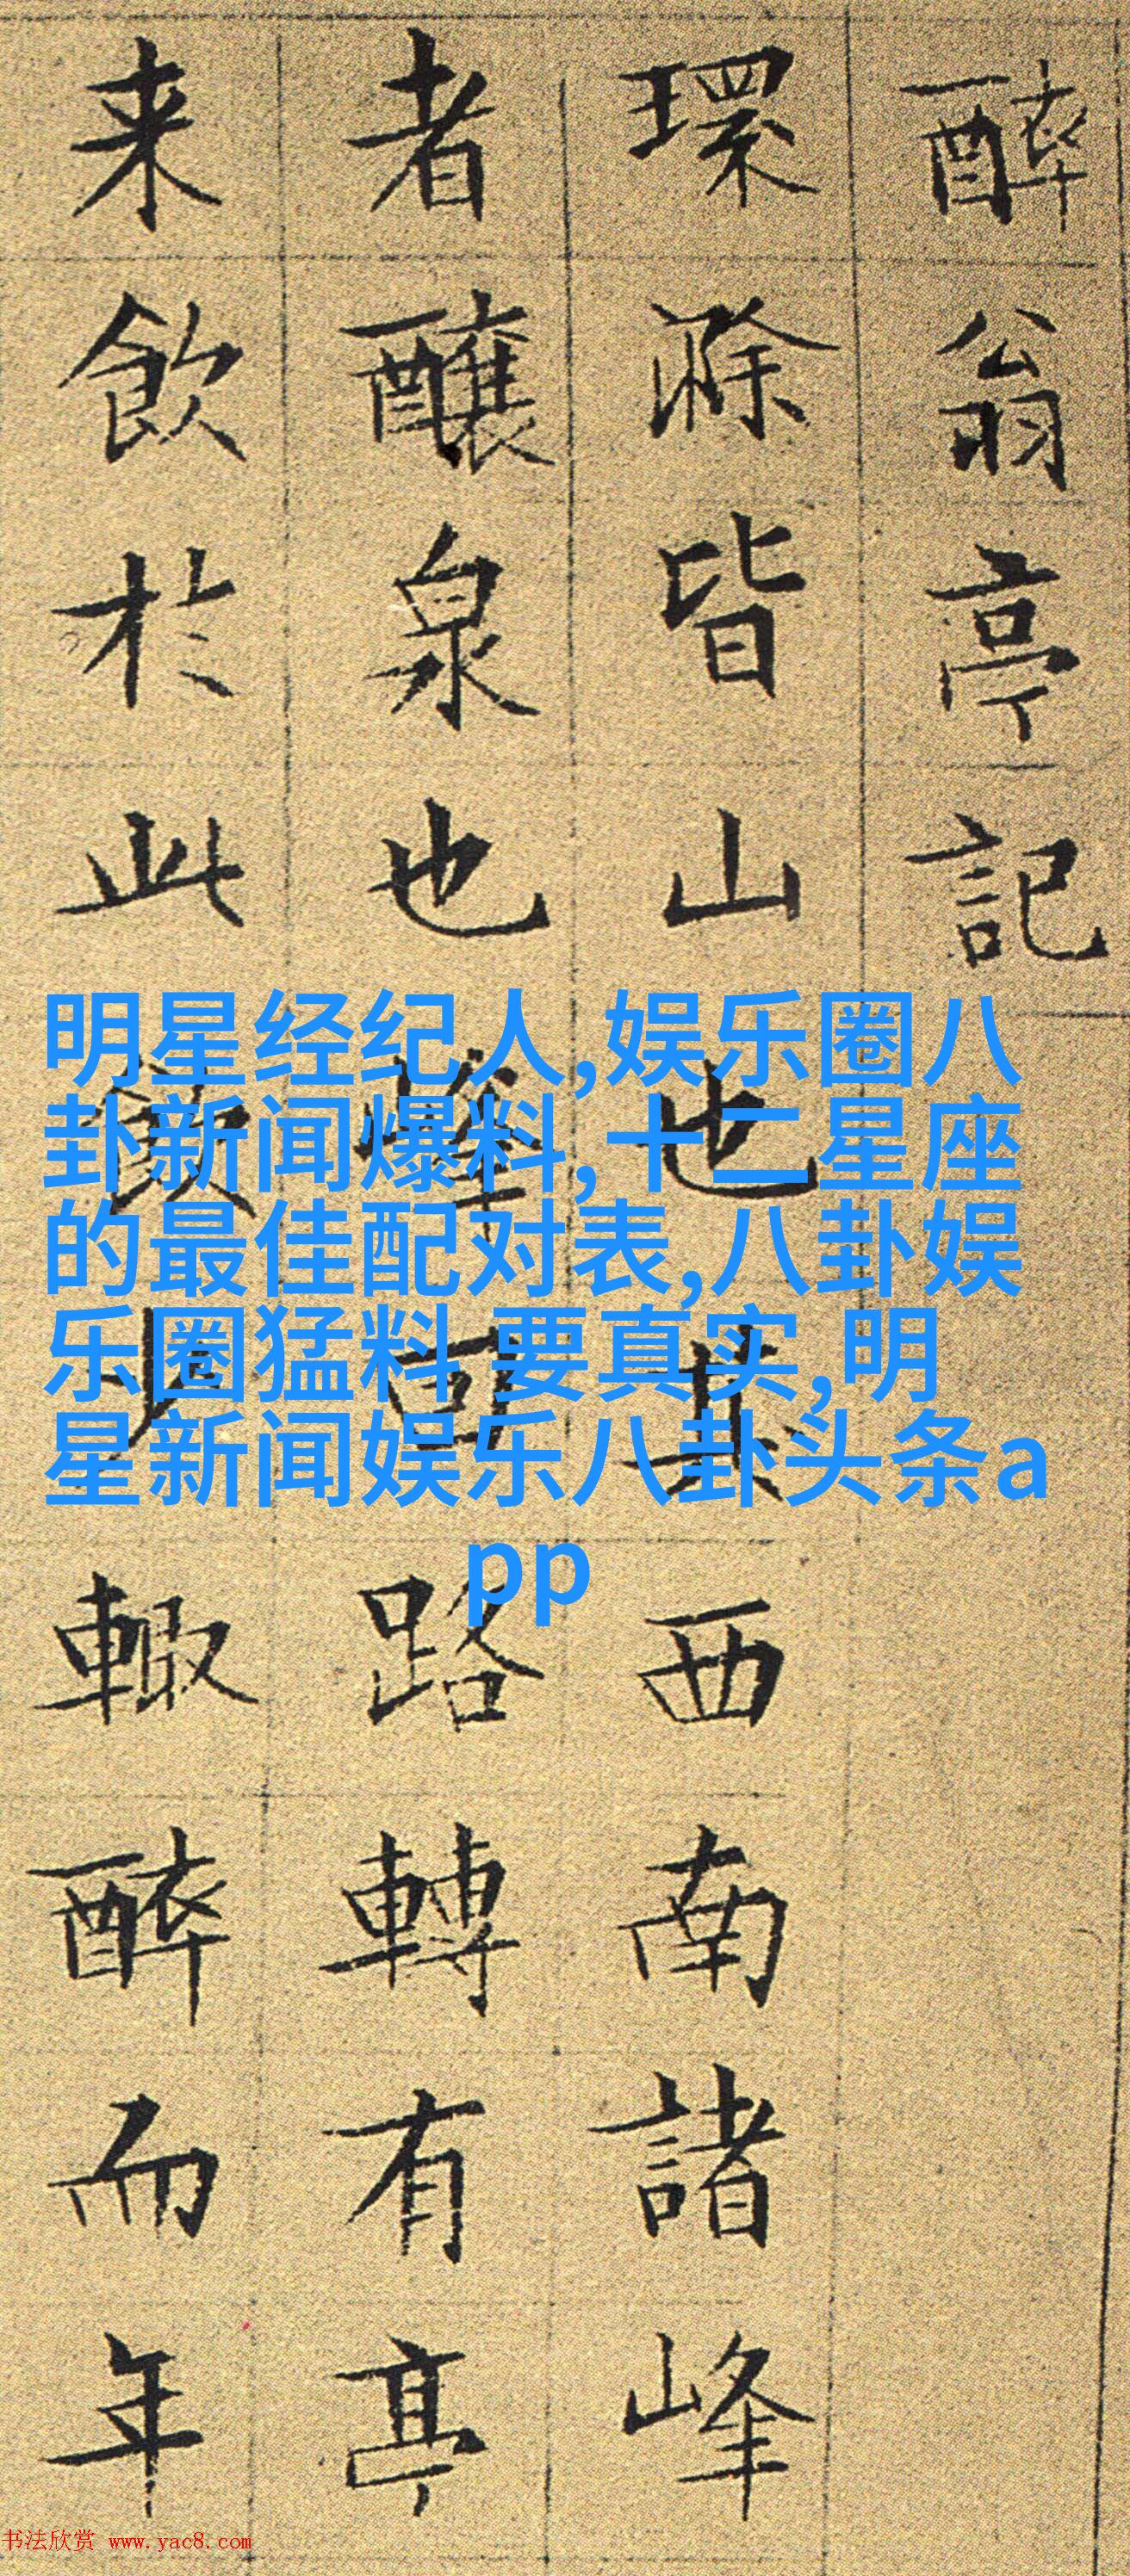 醉翁亭記
環滁皆山也其西南諸峰
者釀泉也路轉有亭
来飲於此飲少輙醉而年
明星经纪人,娱乐圈八
卦新闻爆料,十二星座
的最佳配对表,八卦娱
乐圈猛料 要真实,明
星新闻娱乐八卦头条a
pp
书法欣赏 www.yac8.com